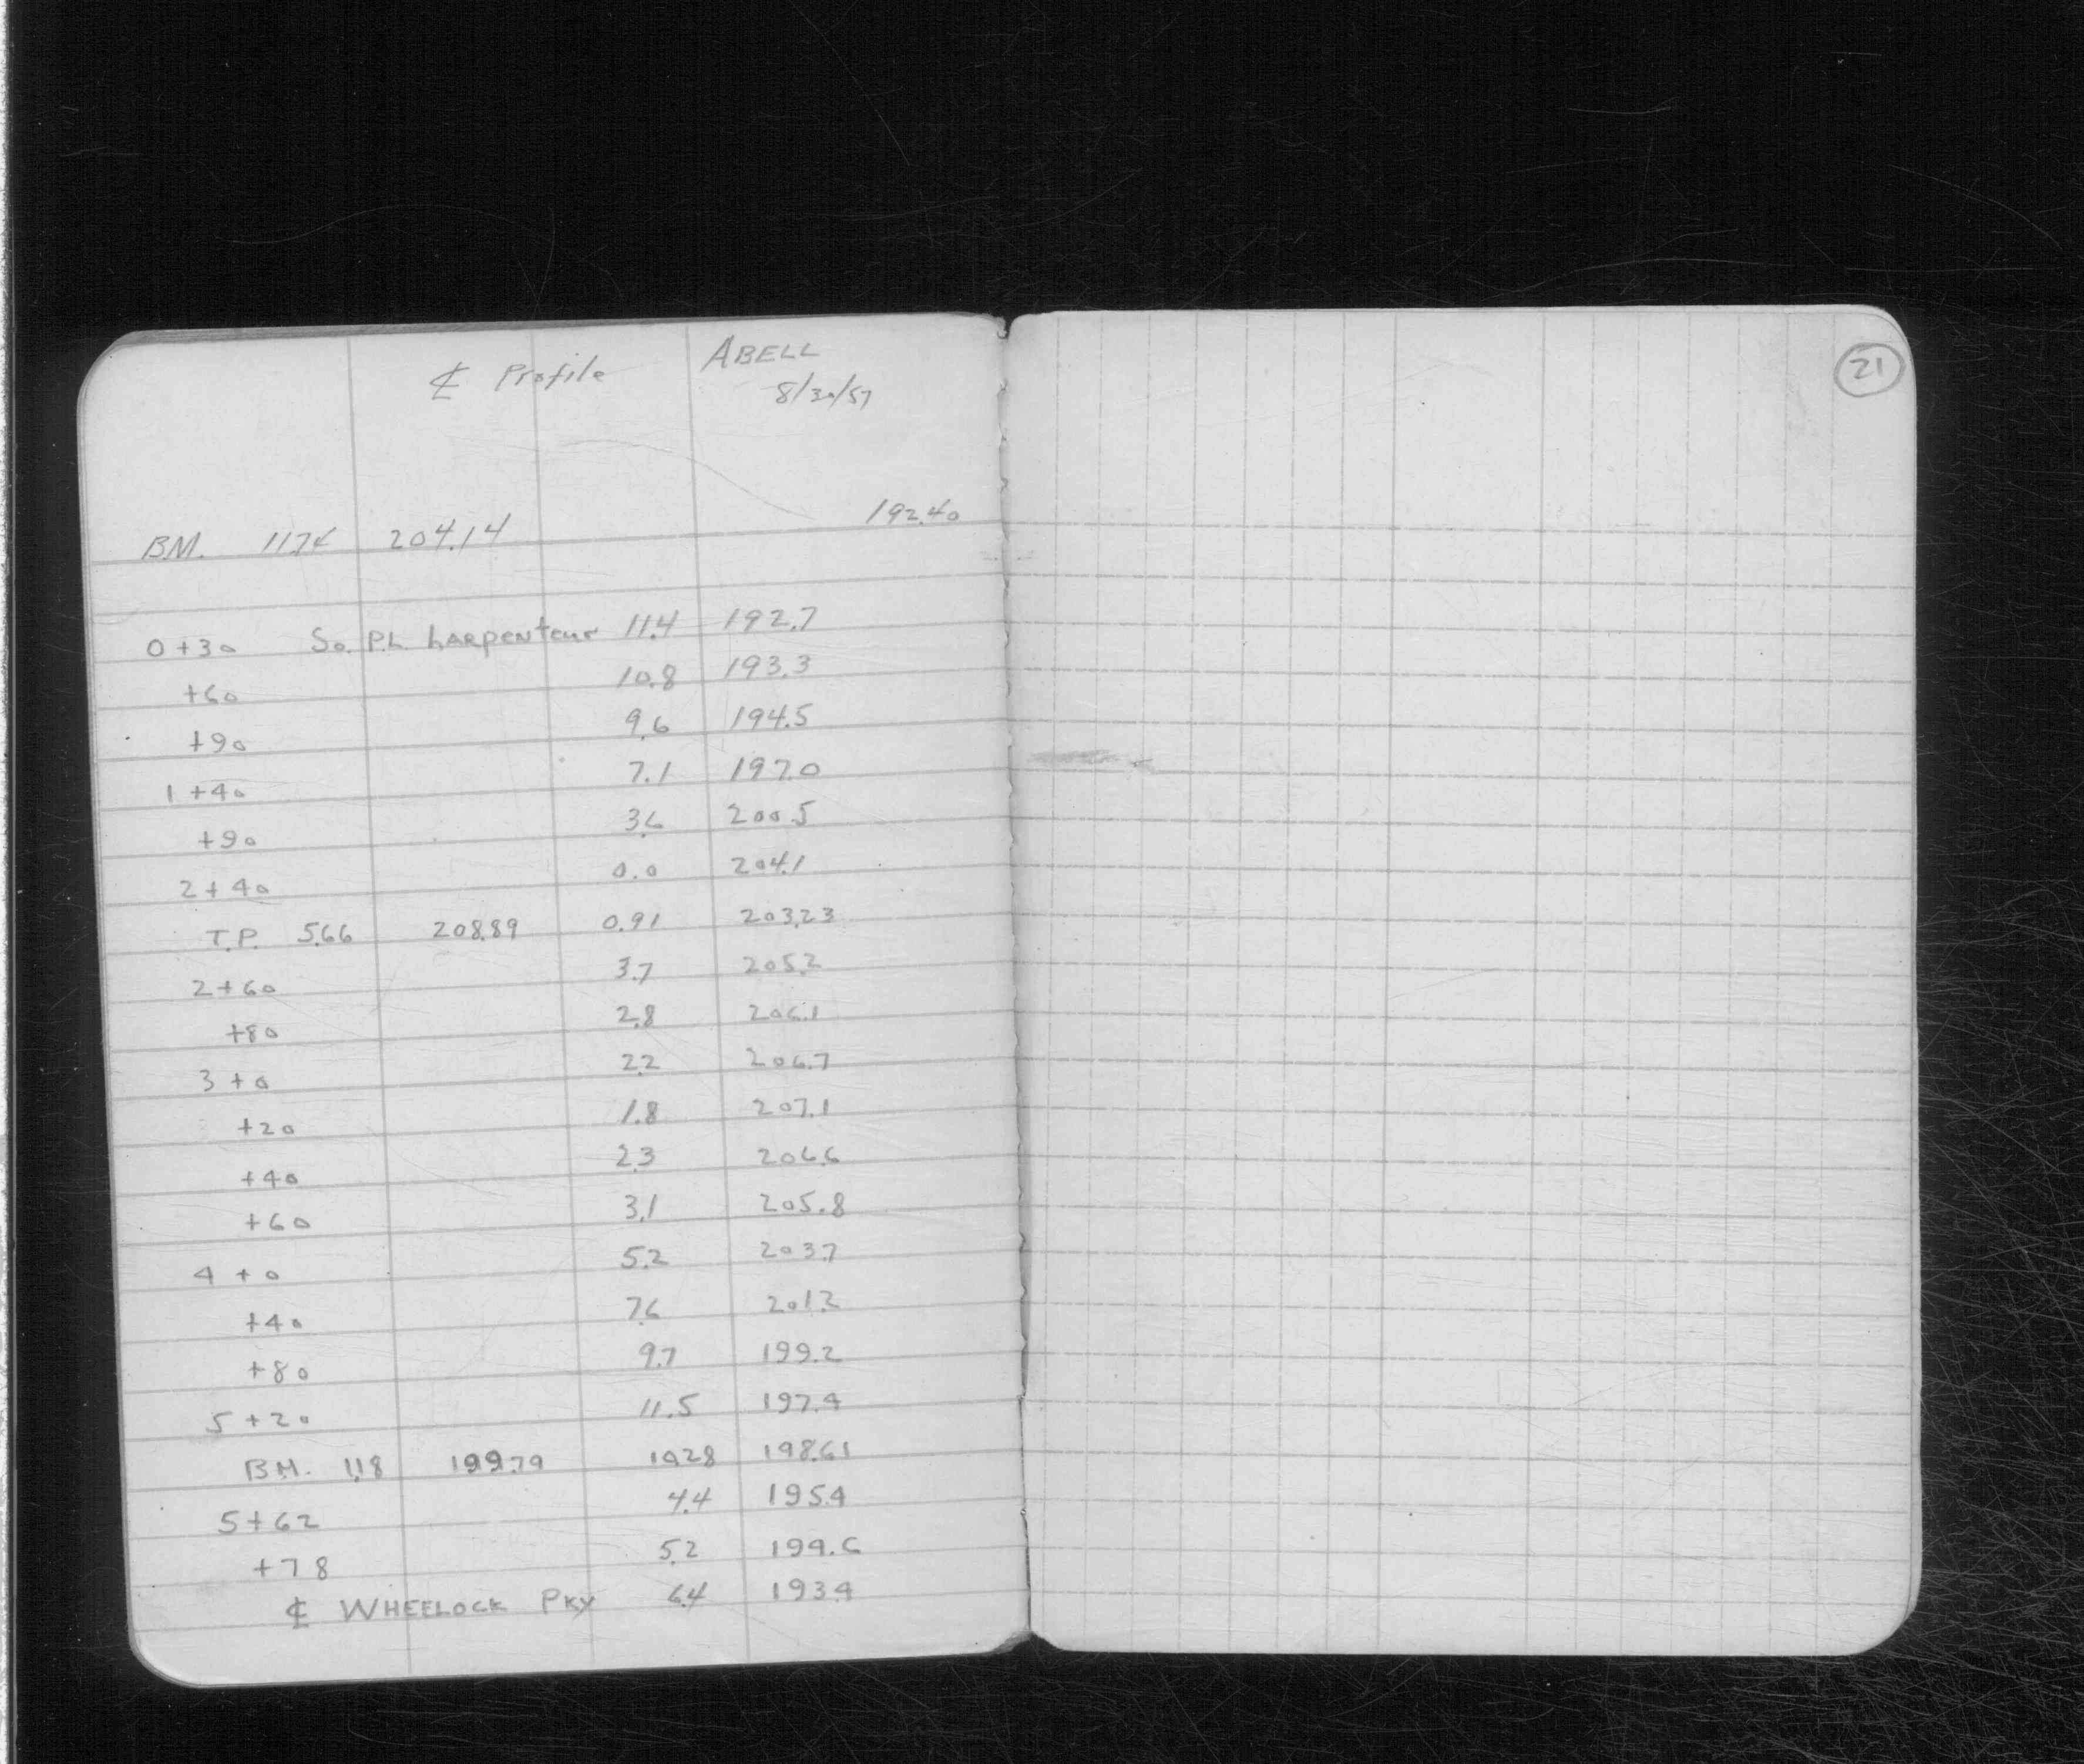 ℄ Profile ABELL
8/30/57
BM. 11.74 204.14 192.40
0+30 So. P.L. LARPENTEUR 11.4 192.7
+60 10.8 193.3
+90 9.6 194.5
1+40 7.1 197.0
+90 3.6 200.5
2+40 0.0 204.1
T.P. 5.66 208.89 0.91 203.23
2+60 3.7 205.2
+80 2.8 206.1
3+0 2.2 206.7
+20 1.8 207.1
+40 2.3 206.6
+60 3.1 205.8
4+0 5.2 203.7
+40 7.6 201.3
+80 9.7 199.2
5+20 11.5 197.4
B.M. 1.18 199.79 10.28 198.61
5+62 4.4 195.4
+78 5.2 194.6
℄ WHEELOCK PKY 6.4 193.4
21